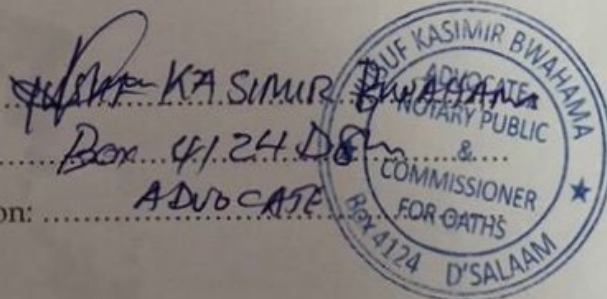 KASIMIR BWAHAMA
Box 4124 DSM
on: ADVOCATE
UF KASIMIR BWAHAMA
ADVOCATE
NOTARY PUBLIC
&
COMMISSIONER
FOR OATHS
Box 4124 D'SALAAM